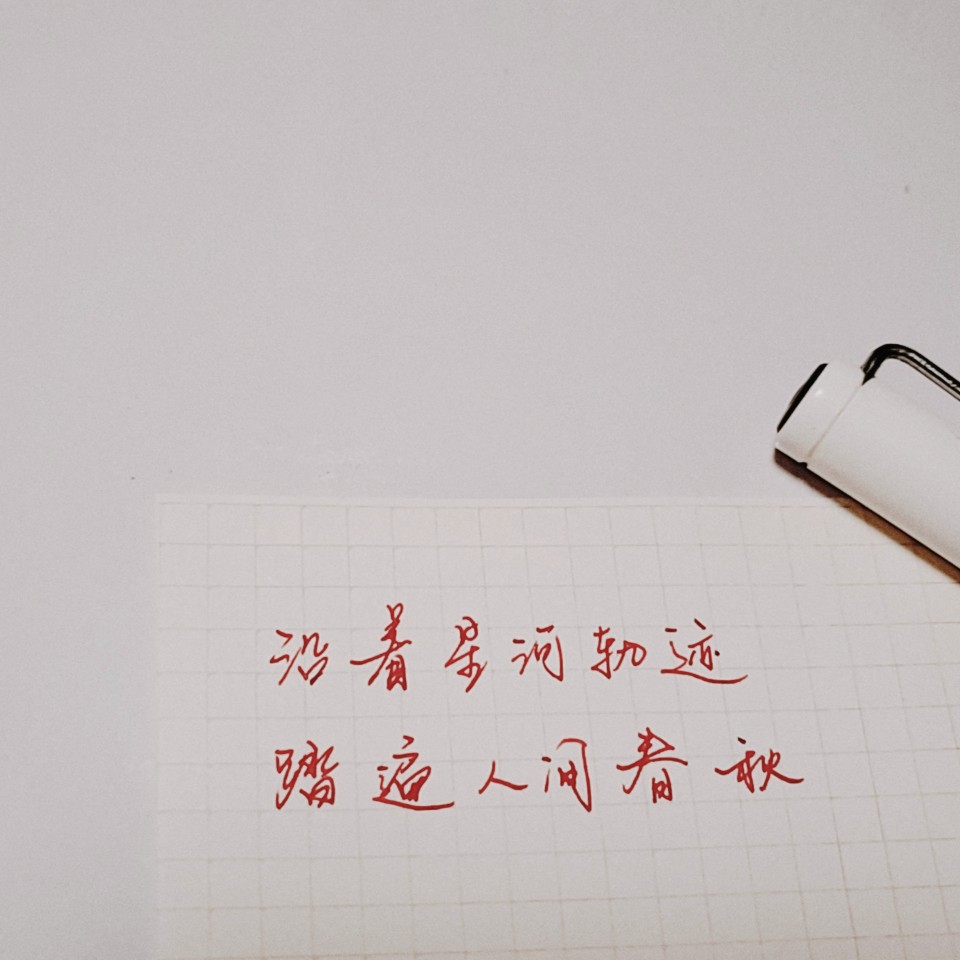 沿着星河轨迹
踏遍人间春秋